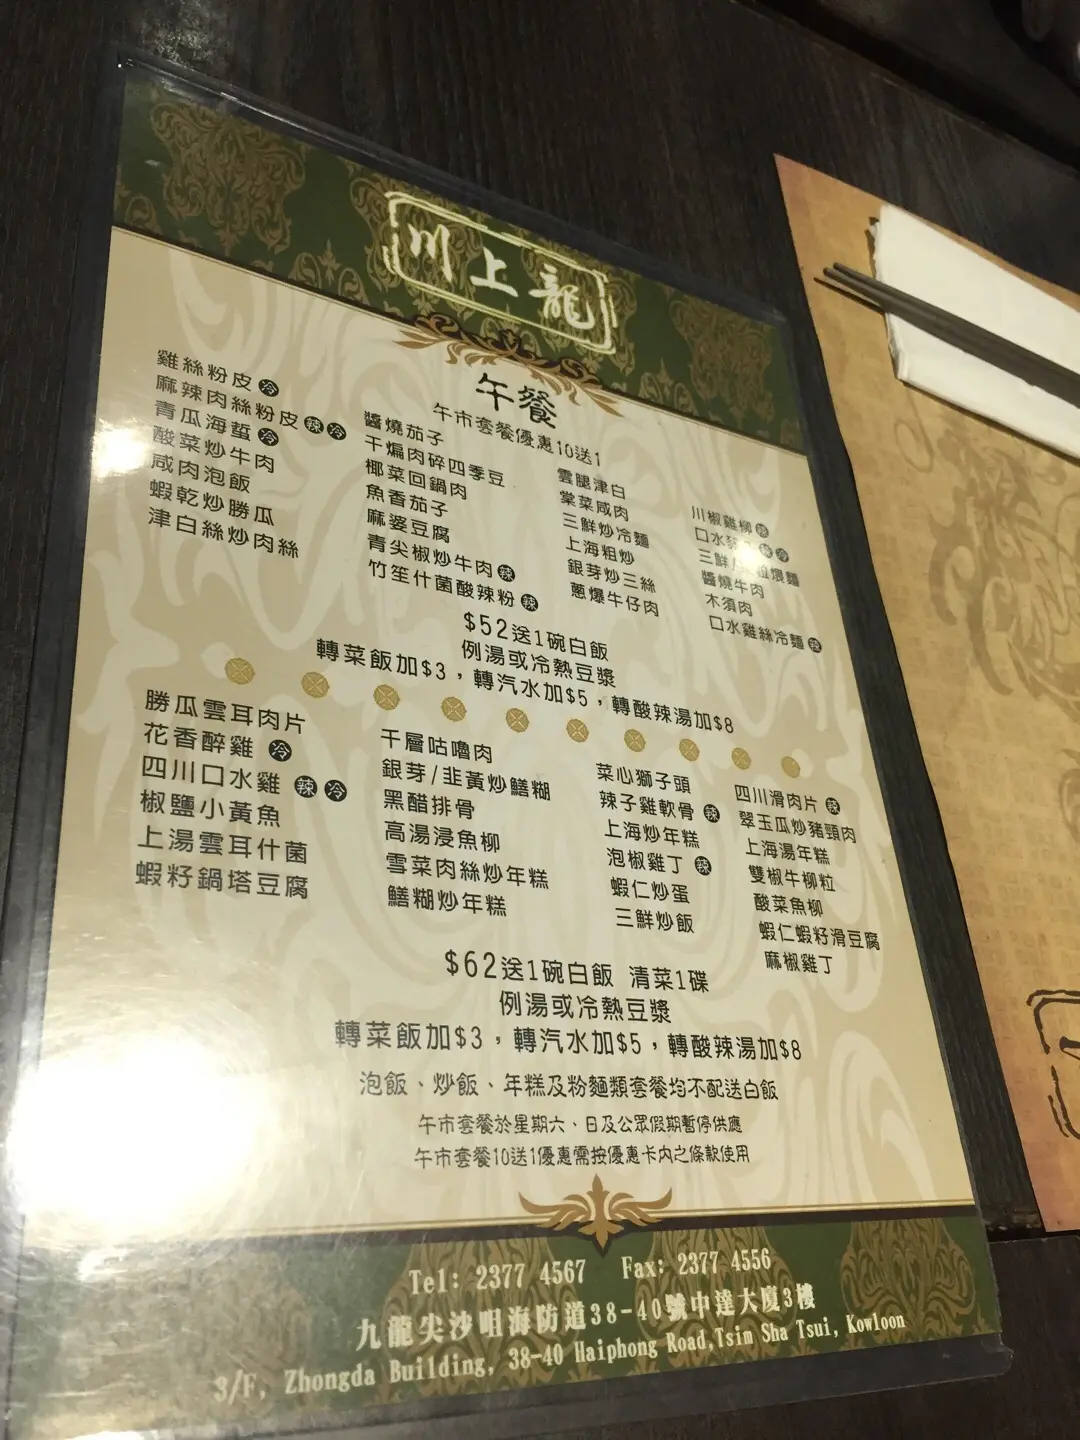 川上龍
午餐
午市套餐優惠10送1
雞絲粉皮 冷
麻辣肉絲粉皮 辣 冷
青瓜海蜇 冷
酸菜炒牛肉
咸肉泡飯
蝦乾炒勝瓜
津白絲炒肉絲
醬燒茄子
干煸肉碎四季豆
椰菜回鍋肉
魚香茄子
麻婆豆腐
青尖椒炒牛肉 辣
竹笙什菌酸辣粉 辣
雲腿津白
棠菜咸肉
三鮮炒冷麵
上海粗炒
銀芽炒三絲
蔥爆牛仔肉
川椒雞柳 辣
口水 冷
三鮮/ 煨麵
醬燒牛肉
木須肉
口水雞絲冷麵 辣
$52送1碗白飯
例湯或冷熱豆漿
轉菜飯加$3，轉汽水加$5，轉酸辣湯加$8
勝瓜雲耳肉片
花香醉雞 冷
四川口水雞 辣 冷
椒鹽小黃魚
上湯雲耳什菌
蝦籽鍋塔豆腐
千層咕嚕肉
銀芽/韭黃炒鱔糊
黑醋排骨
高湯浸魚柳
雪菜肉絲炒年糕
鱔糊炒年糕
菜心獅子頭
辣子雞軟骨 辣
上海炒年糕
泡椒雞丁 辣
蝦仁炒蛋
三鮮炒飯
四川滑肉片 辣
翠玉瓜炒豬頸肉
上海湯年糕
雙椒牛柳粒
酸菜魚柳
蝦仁蝦籽滑豆腐
麻椒雞丁
$62送1碗白飯 清菜1碟
例湯或冷熱豆漿
轉菜飯加$3，轉汽水加$5，轉酸辣湯加$8
泡飯、炒飯、年糕及粉麵類套餐均不配送白飯
午市套餐於星期六、日及公眾假期暫停供應
午市套餐10送1優惠需按優惠卡內之條款使用
Tel: 2377 4567 Fax: 2377 4556
九龍尖沙咀海防道38-40號中達大廈3樓
3/F, Zhongda Building, 38-40 Haiphong Road,Tsim Sha Tsui, Kowloon